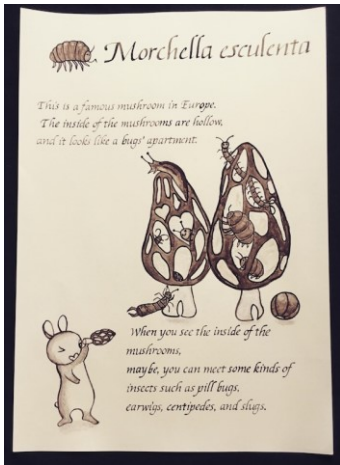 Morchella esculenta
This is a famous mushroom in Europe.
The inside of the mushrooms are hollow,
and it looks like a bugs' apartment.
When you see the inside of the
mushrooms,
maybe, you can meet some kinds of
insects such as pill bugs,
earwigs, centipedes, and slugs.